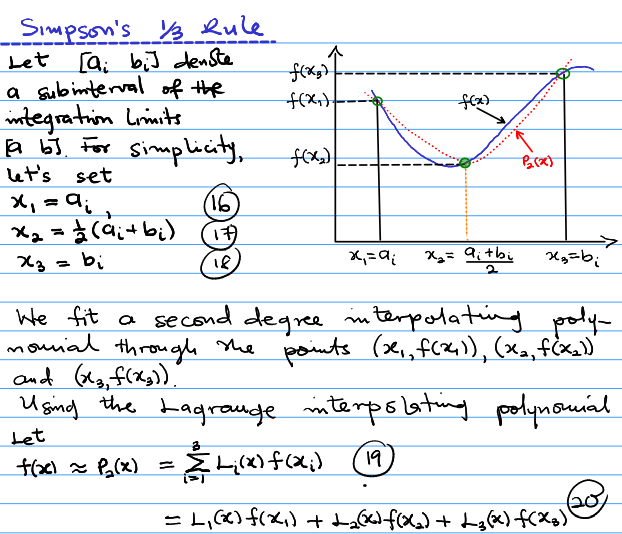 Simpson's 1/3 Rule
Let [aᵢ bᵢ] denote
a subinterval of the
integration limits
[a b]. For simplicity,
let's set
x₁ = aᵢ, (16)
x₂ = ½(aᵢ+bᵢ) (17)
x₃ = bᵢ (18)
f(x₃)
f(x₁)
f(x₂)
f(x)
P₂(x)
x₁=aᵢ x₂= (aᵢ+bᵢ)/2 x₃=bᵢ
We fit a second degree interpolating poly-
nomial through the points (x₁, f(x₁)), (x₂, f(x₂))
and (x₃, f(x₃)).
Using the Lagrange interpolating polynomial
Let
f(x) ≈ P₂(x) = ∑ᵢ₌₁³ Lᵢ(x) f(xᵢ) (19)
= L₁(x) f(x₁) + L₂(x) f(x₂) + L₃(x) f(x₃) (20)